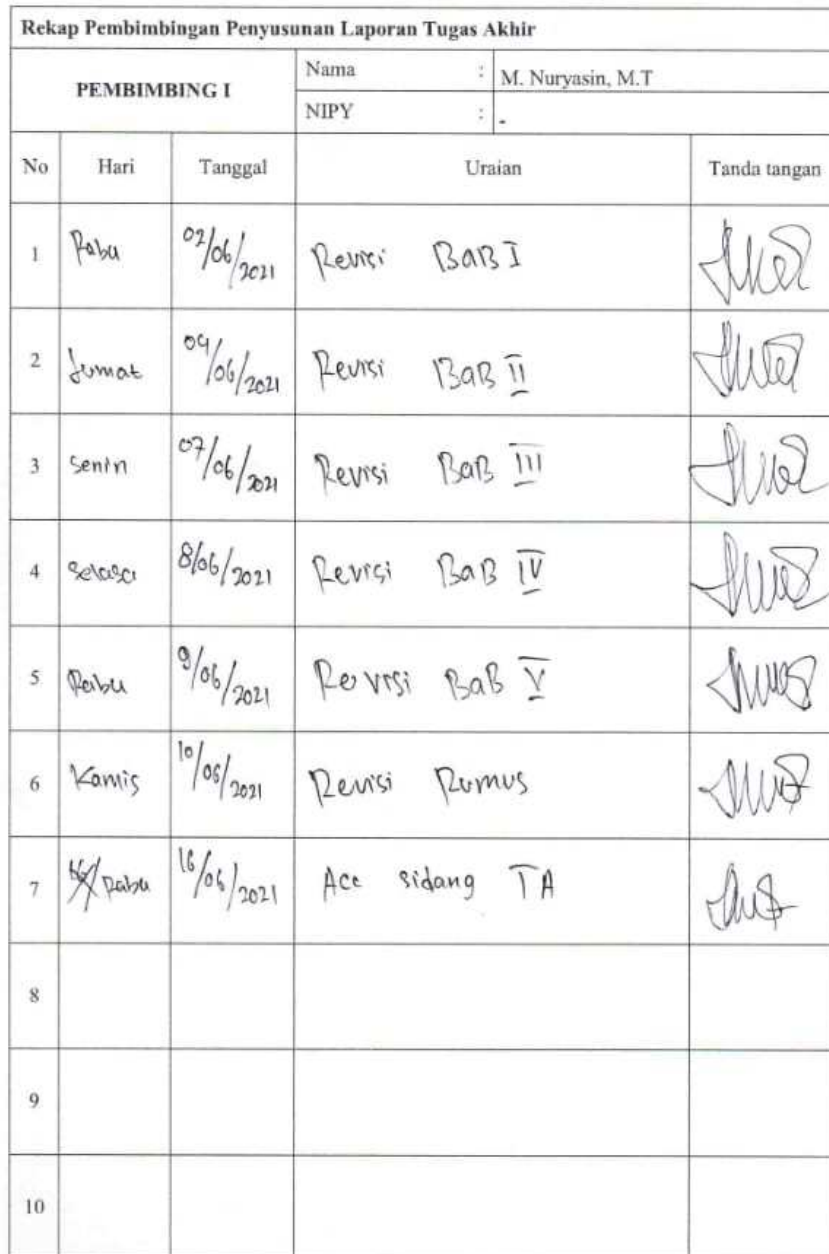 Rekap Pembimbingan Penyusunan Laporan Tugas Akhir
PEMBIMBING I
Nama : M. Nuryasin, M.T
NIPY : -
No Hari Tanggal Uraian Tanda tangan
1 Rabu 02/06/2021 Revisi BaB I
2 Jumat 04/06/2021 Revisi BaB II
3 Senin 07/06/2021 Revisi BaB III
4 Selasa 8/06/2021 Revisi BaB IV
5 Rabu 9/06/2021 Revisi BaB V
6 Kamis 10/06/2021 Revisi Rumus
7 Rabu 16/06/2021 Acc sidang TA
8
9
10